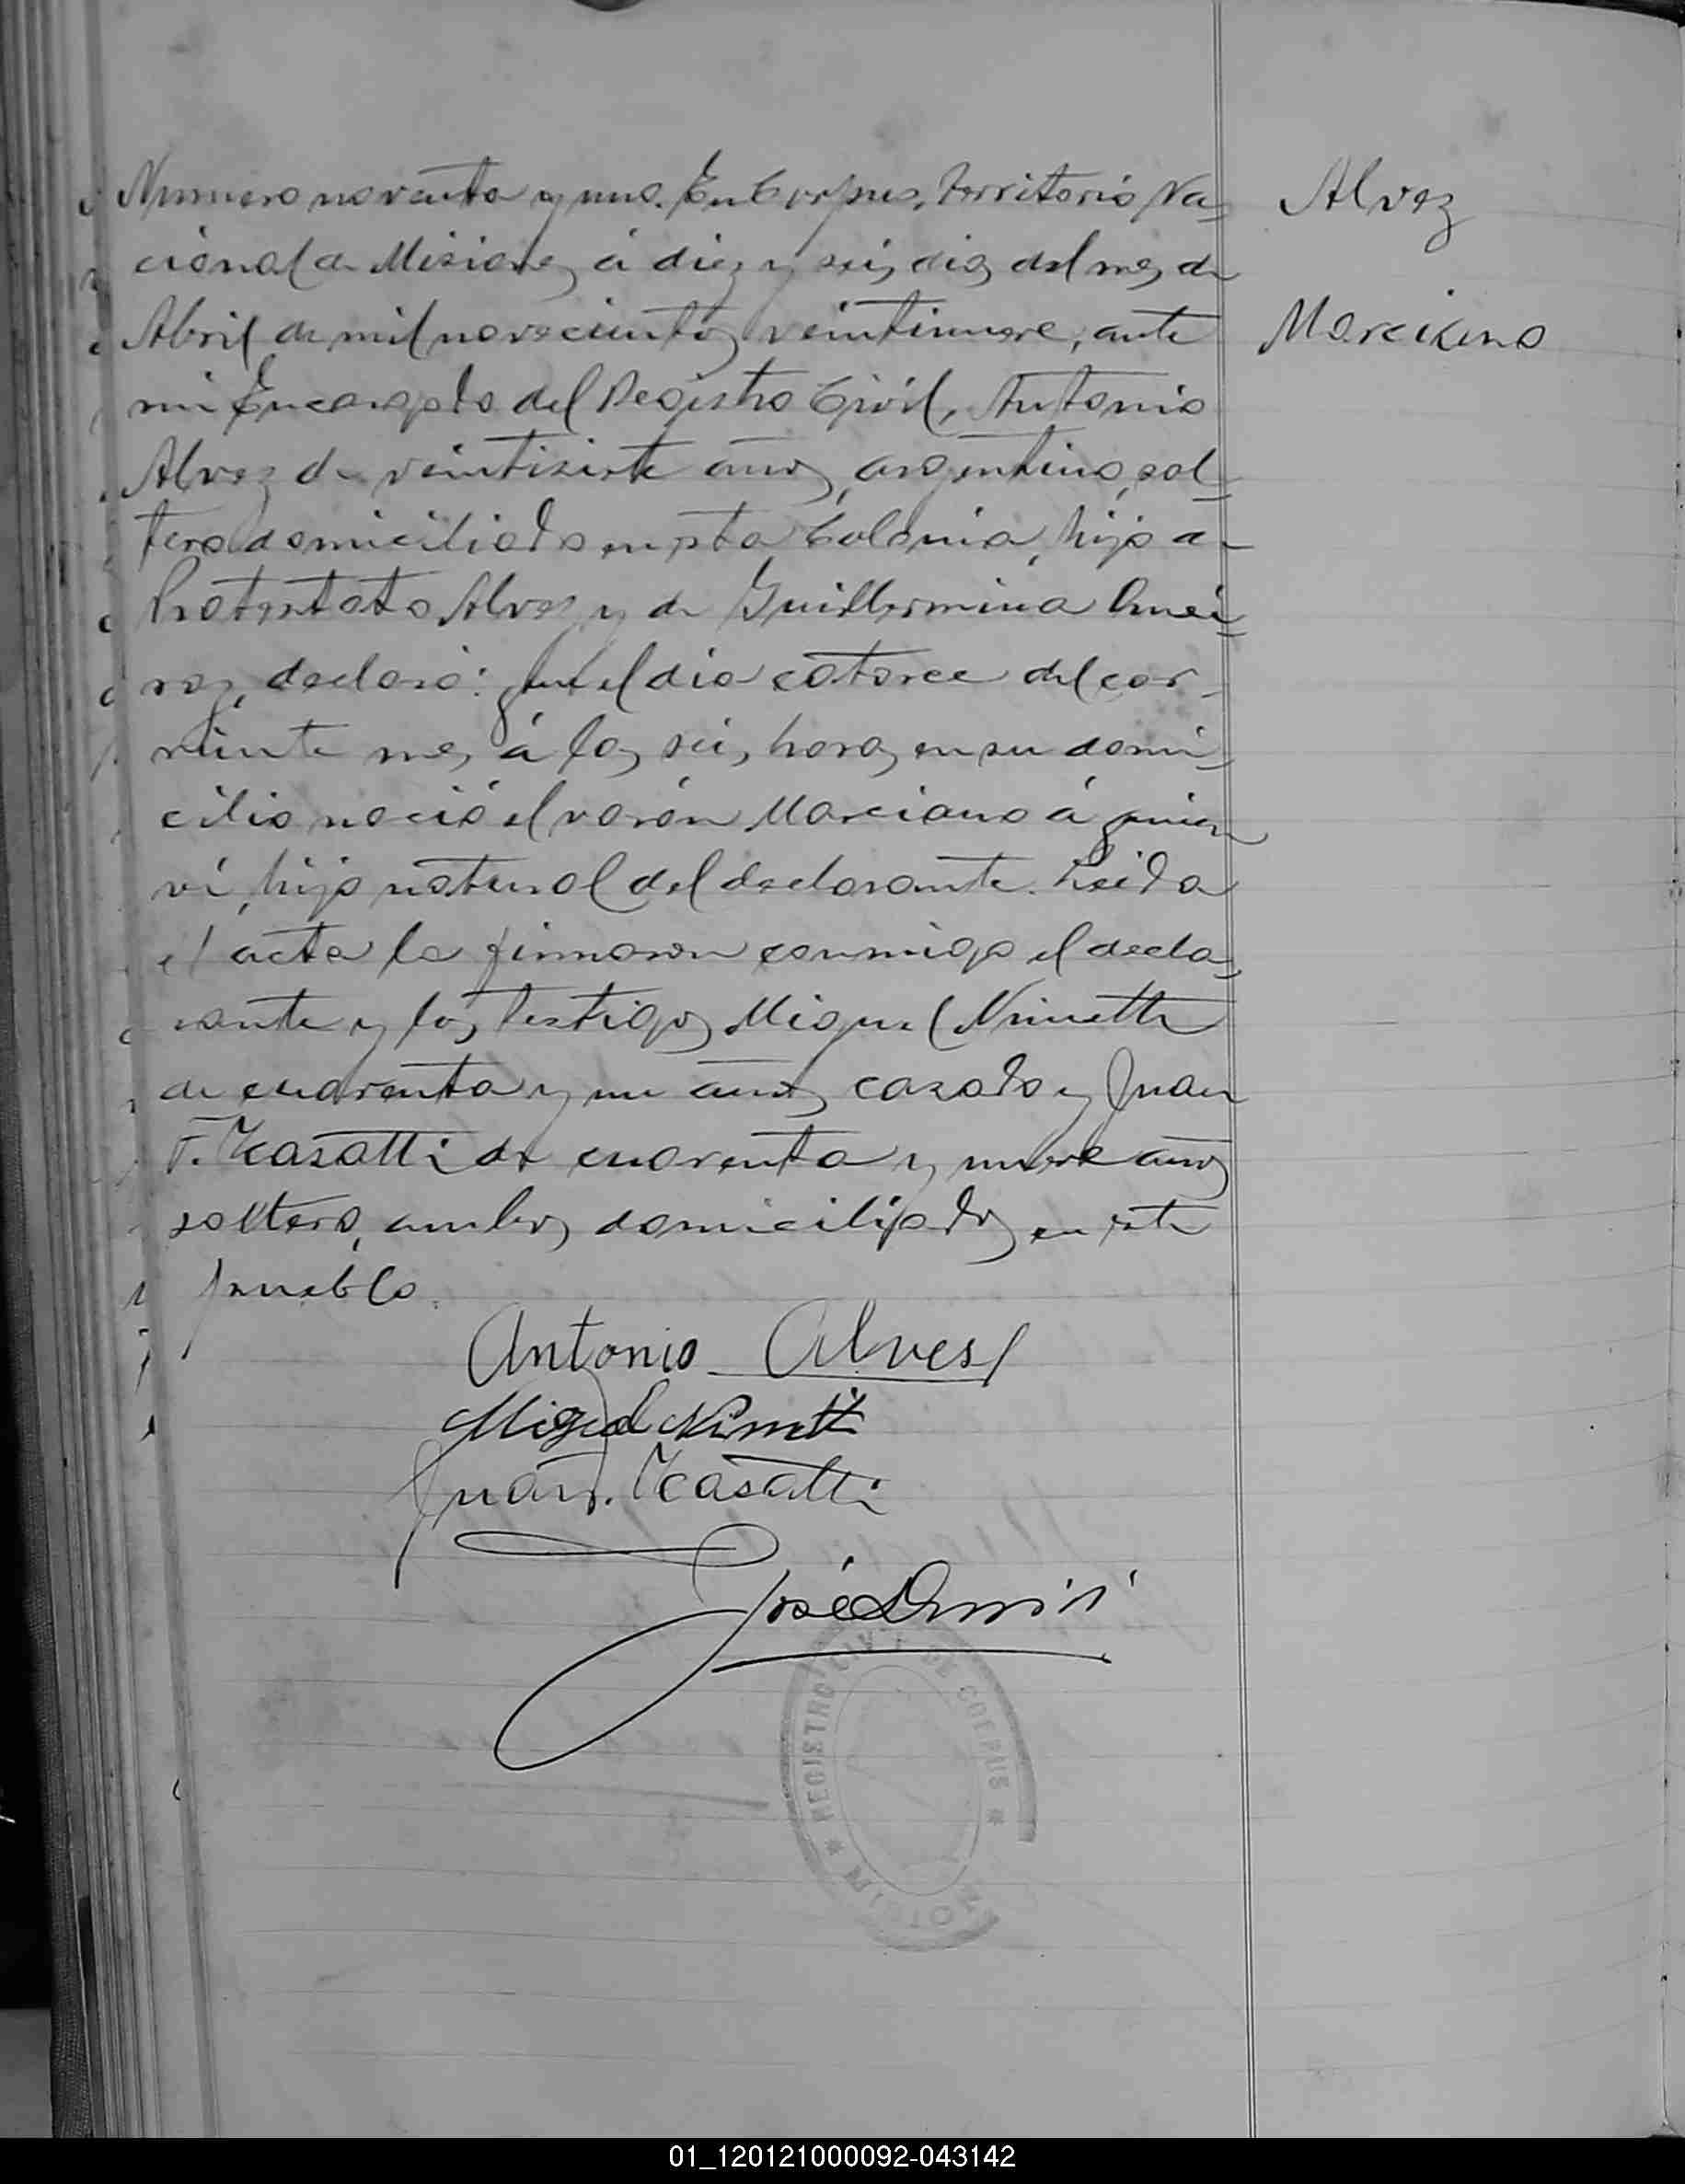 Alvez
Marciano
Numero noventa y uno. En Corpus, Territorio Na=
cional de Misiones á diez y seis dias del mes de
Abril de mil novecientos veintinueve, ante
mi Encargado del Registro Civil, Antonio
Alvez de veintisiete años, argentino, sol=
tero domiciliado en esta Colonia, hijo de
Protestato Alvez y de Guillermina
declaró: que el dia catorce del cor-
riente mes á las seis horas en su domi=
cilio nació el varón Marciano á quien
ví, hijo natural del declarante. Leida
el acta la firmaron conmigo el decla=
rante y los testigos Miguel Nimetti
de cuarenta y un años, casado y Juan
F. Kasatti de cuarenta y nueve años
soltero, ambos domiciliados en este
pueblo.
Antonio Alves
Miguel Nimetti
Juan F. Kasatti
José
REGISTRO CIVIL DE CORPUS
01_120121000092-043142